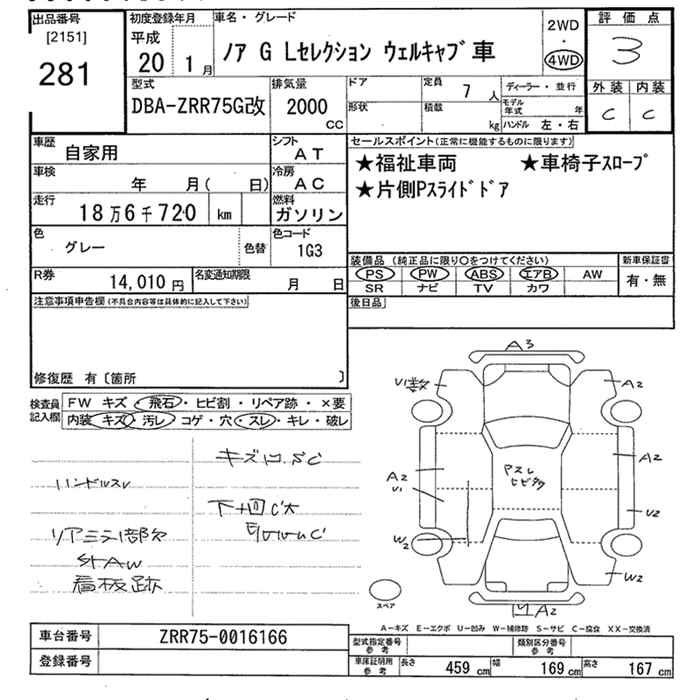 出品番号 初度登録年月 車名・グレード 評価点
[2151] 平成 2WD
281 20 1月 ノア G Lセレクション ウェルキャブ車 4WD 3
型式 排気量 ドア 定員 7人 ディーラー・並行 外装 内装
DBA-ZRR75G改 2000 cc 形状 積載 kg モデル年式 年 C C
ハンドル 左・右
車歴 自家用 シフト AT セールスポイント(正常に機能するものに限ります)
車検 年 月( 日) 冷房 AC ★福祉車両 ★車椅子スロープ
走行 18万6千720 km 燃料 ガソリン ★片側Pスライドドア
色 グレー 色替 色コード 1G3
装備品 (純正品に限り○をつけてください) 新車保証書
R券 14,010円 名変通知期限 月 日 PS PW ABS エアB AW 有・無
SR ナビ TV カワ
注意事項申告欄(不具合内容等は具体的に記入して下さい) 後日品
修復歴 有〔箇所 〕
検査員記入欄 FW キズ・飛石・ヒビ割・リペア跡・×要
内装 キズ・汚レ・コゲ・穴・スレ・キレ・破レ
ハンドルスレ
看板跡
A3
U1数 A2
A2 U1 A2
U2
W2 W2
A2
スペア
A-キズ E-エクボ U-凹み W-補修跡 S-サビ C-腐食 XX-交換済
車台番号 ZRR75-0016166 型式指定番号 参考 類別区分番号 参考
登録番号 車庫証明用 参考 長さ 459cm 幅 169cm 高さ 167cm